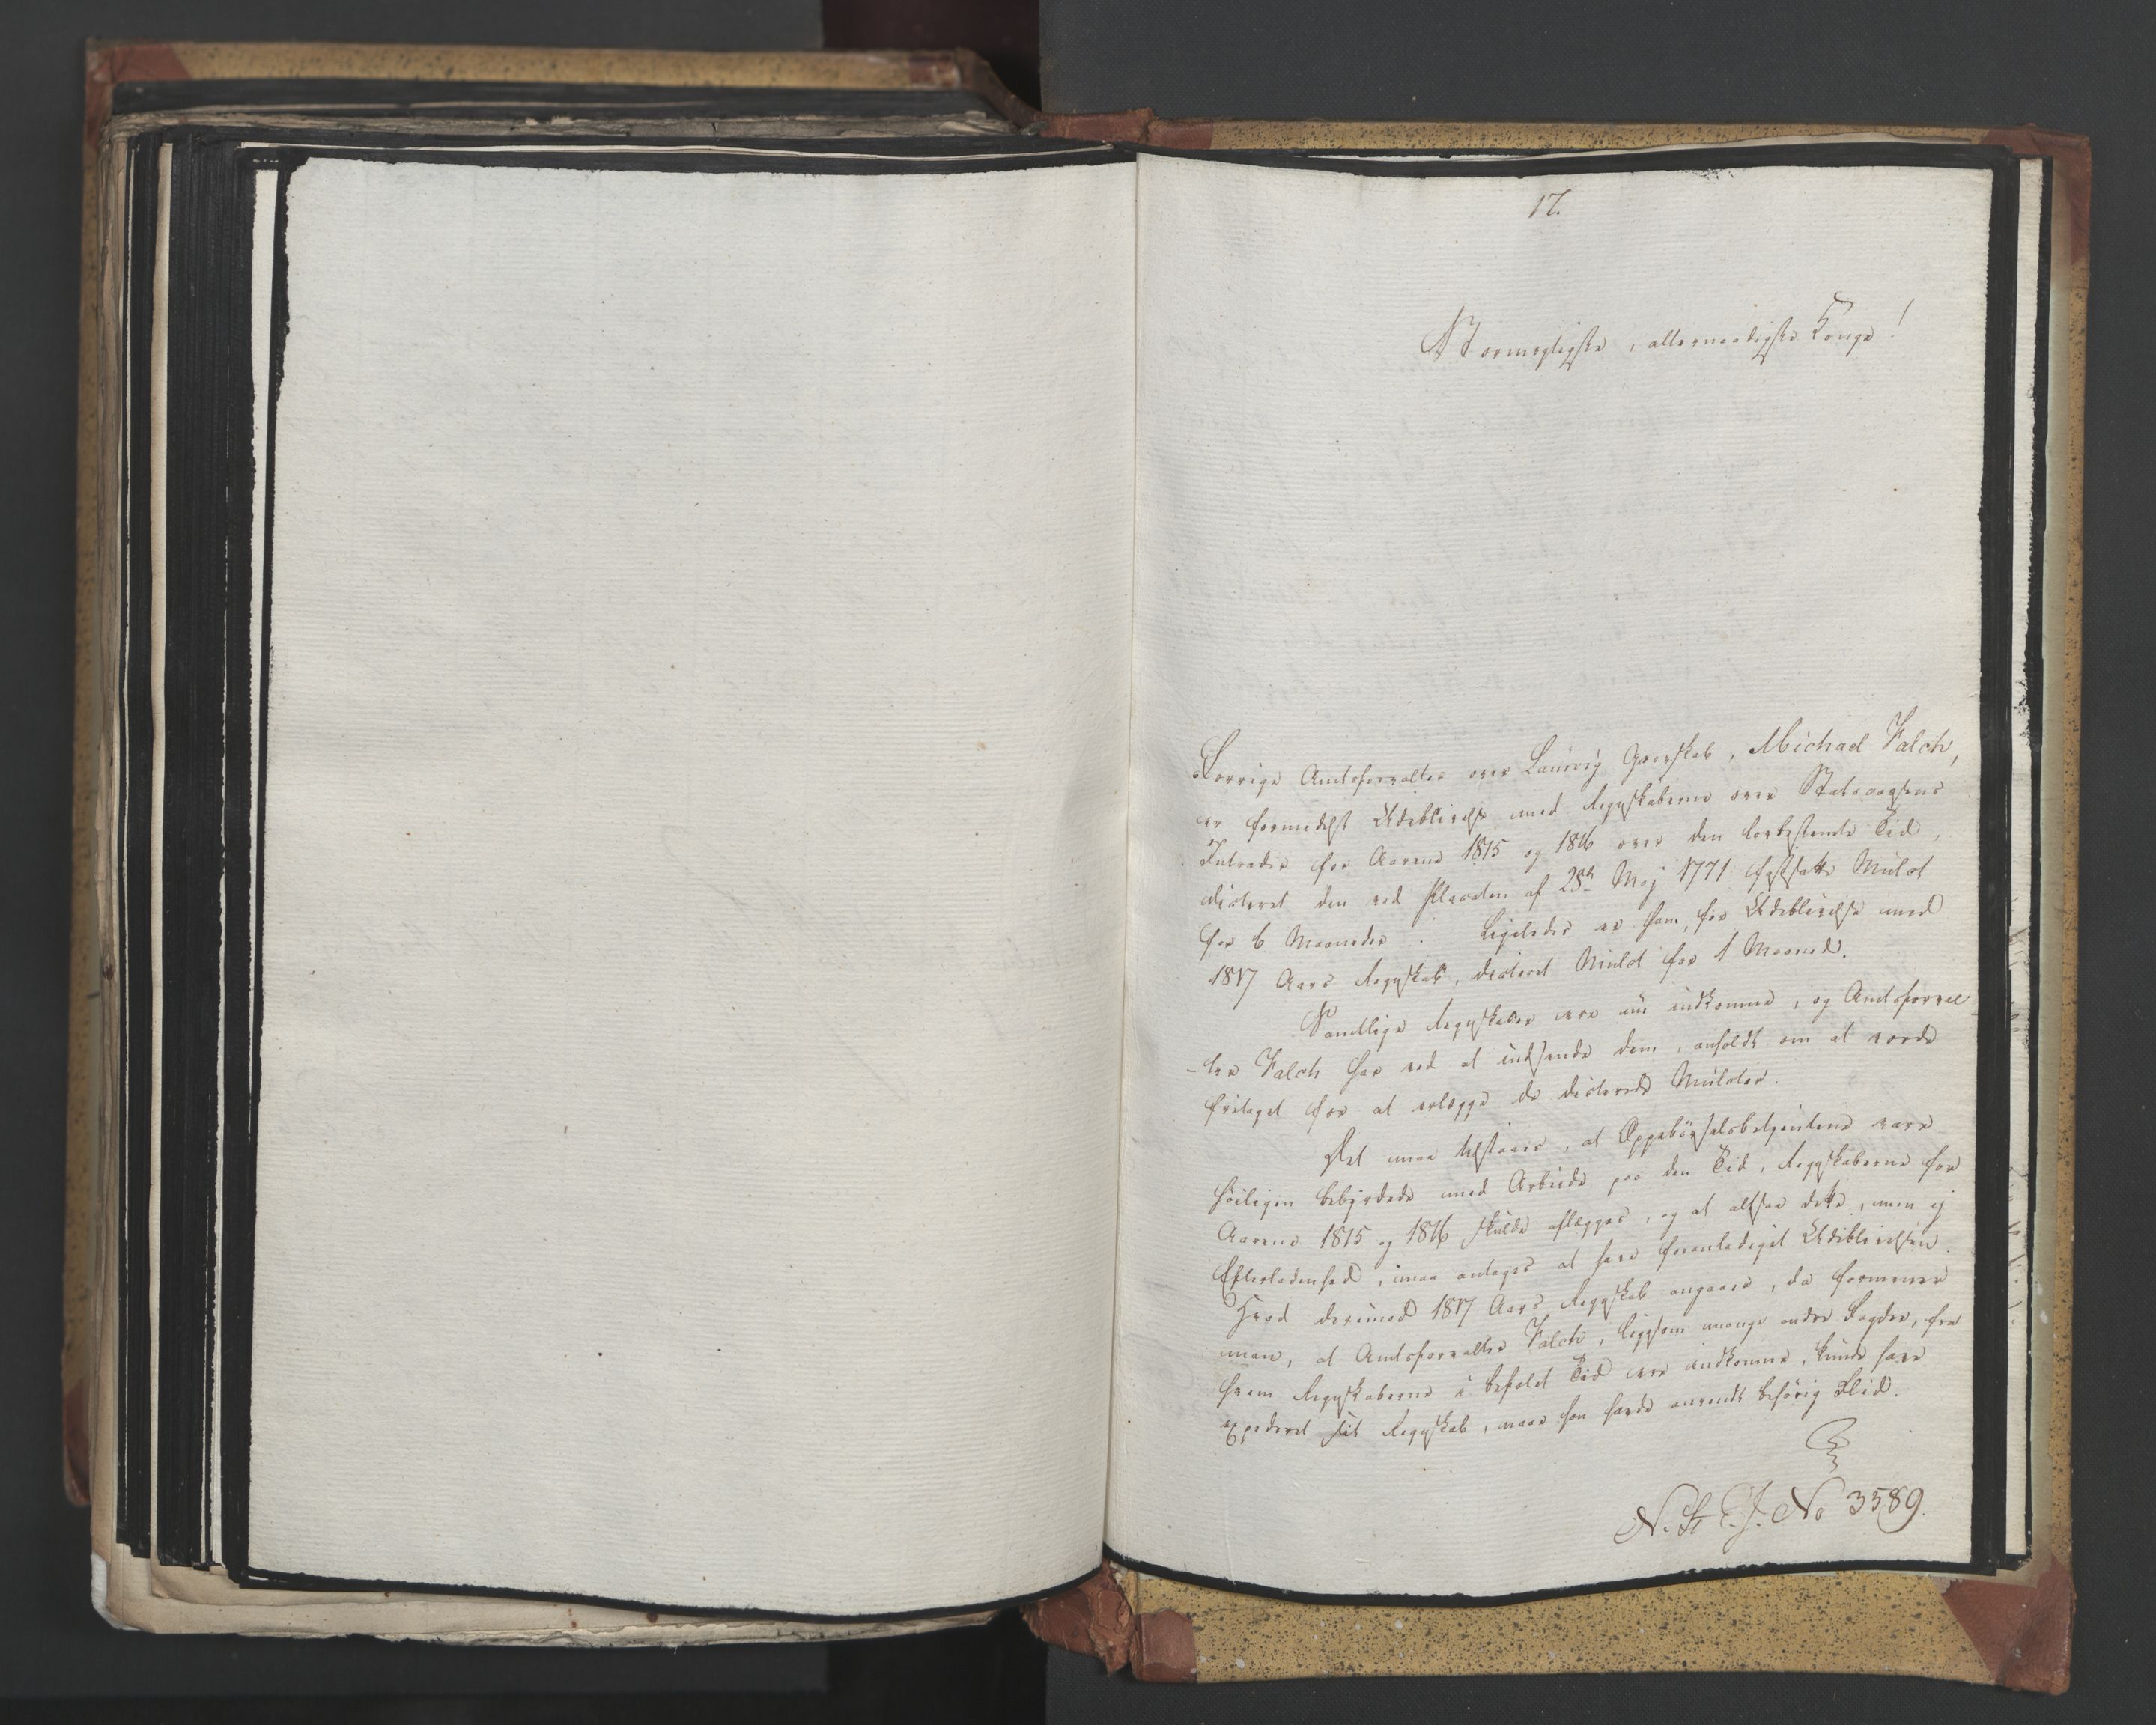 17.
Stormægtigste, allernaadigste Konge!
Forrige Amtsforvalter over Laurvig Grevskab, Michael Falch,
er formedelst Udeblivelse med Regnskaberne over Statscassens
Intrader for Aarene 1815 og 1816 over den lovbestemte Tid,
dicteret den ved Placaten af 28de Maj 1771 fastsatte Mulct
for 6 Maaneder. Ligeledes er ham, for Udeblivelse med
1817 Aars Regnskab, dicteret Mulct for 1 Maaned.
Samtlige Regnskaber ere nu indkomne, og Amtsforval
-ter Falch har ved at indsende dem, anholdt om at vorde
fritaget for at erlægge de dicterede Mulcter.
Det maa tilstaaes, at Oppebørselsbetjentene vare
høiligen bebyrdede med Arbeide paa den Tid, Regnskaberne for
Aarene 1815 og 1816 skulde aflægges, og at altsaa dette, men ej
Efterladenhed, maa antages at have foranlediget Udeblivelsen.
Hvad derimod 1817 Aars Regnskab angaaer, da formener
man, at Amtsforvalter Falch, ligesom mange andre Fogder, fra
hvem Regnskaberne i befalet Tid ere indkomne, kunde have
expederet sit Regnskab, naar han havde anvendt behørig Flid.
N. St. C. J. No 3589.